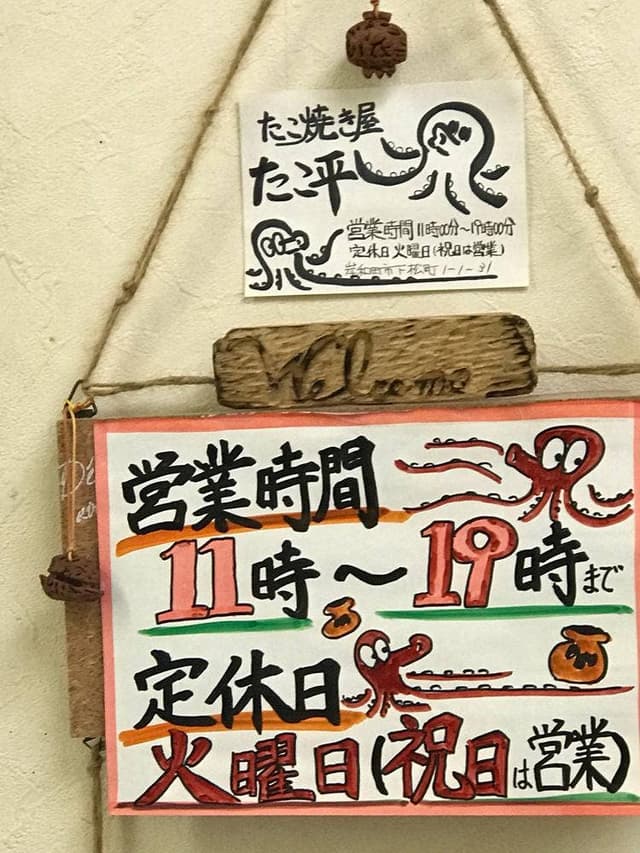 たこ焼き屋
たこ平
営業時間11時00分～19時00分
定休日火曜日(祝日は営業)
岸和田市下松町1-1-31
Welcome
営業時間
11時～19時まで
定休日
火曜日(祝日は営業)